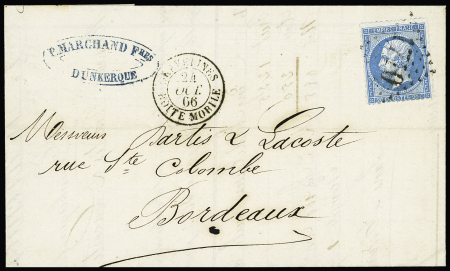 P. MARCHAND Fres
DUNKERQUE
GRAVELINES
24
OCT
66
BOITE MOBILE
EMPIRE FRANC
Messieurs Sartis & Lacoste
rue Ste Colombe
Bordeaux